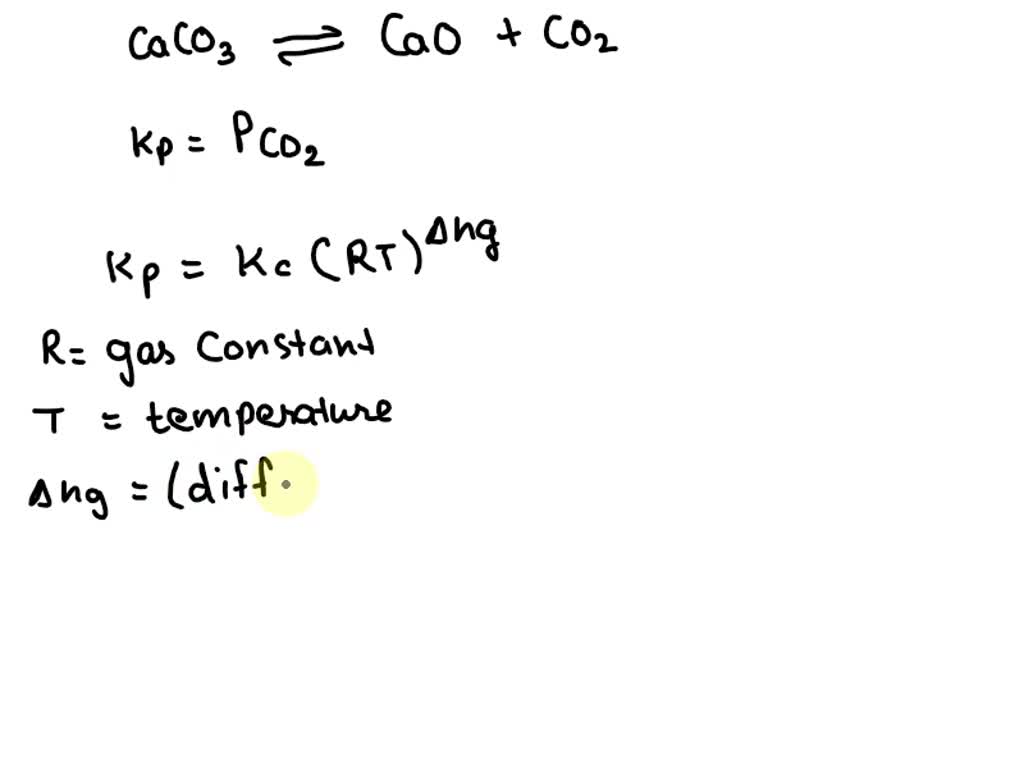 CaCO₃ ⇌ CaO + CO₂
Kp = PCO₂
Kp = Kc (RT)^Δng
R = gas Constant
T = temperature
Δng = (diff